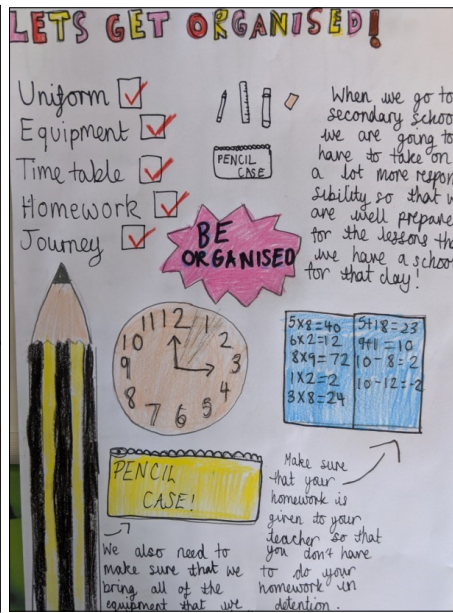 LETS GET ORGANISED!
Uniform
Equipment
Time table
Homework
Journey
PENCIL
CASE
When we go to
secondary school
we are going to
have to take on
a lot more respon
sibility so that
are well prepare
for the lessons tha
we have a school
for that day!
BE
ORGANISED
11 12 1
10 2
9 3
8 4
7 6 5
5x8=40
6x2=12
8x9=72
1x2=2
3x8=24
5+18=23
9+1=10
10-8=2
10-12=-2
PENCIL
CASE!
We also need to
make sure that we
bring all of the
equipment that we
Make sure
that your
homework is
given to your
teacher so that
you don't have
to do your
homework in
detention.